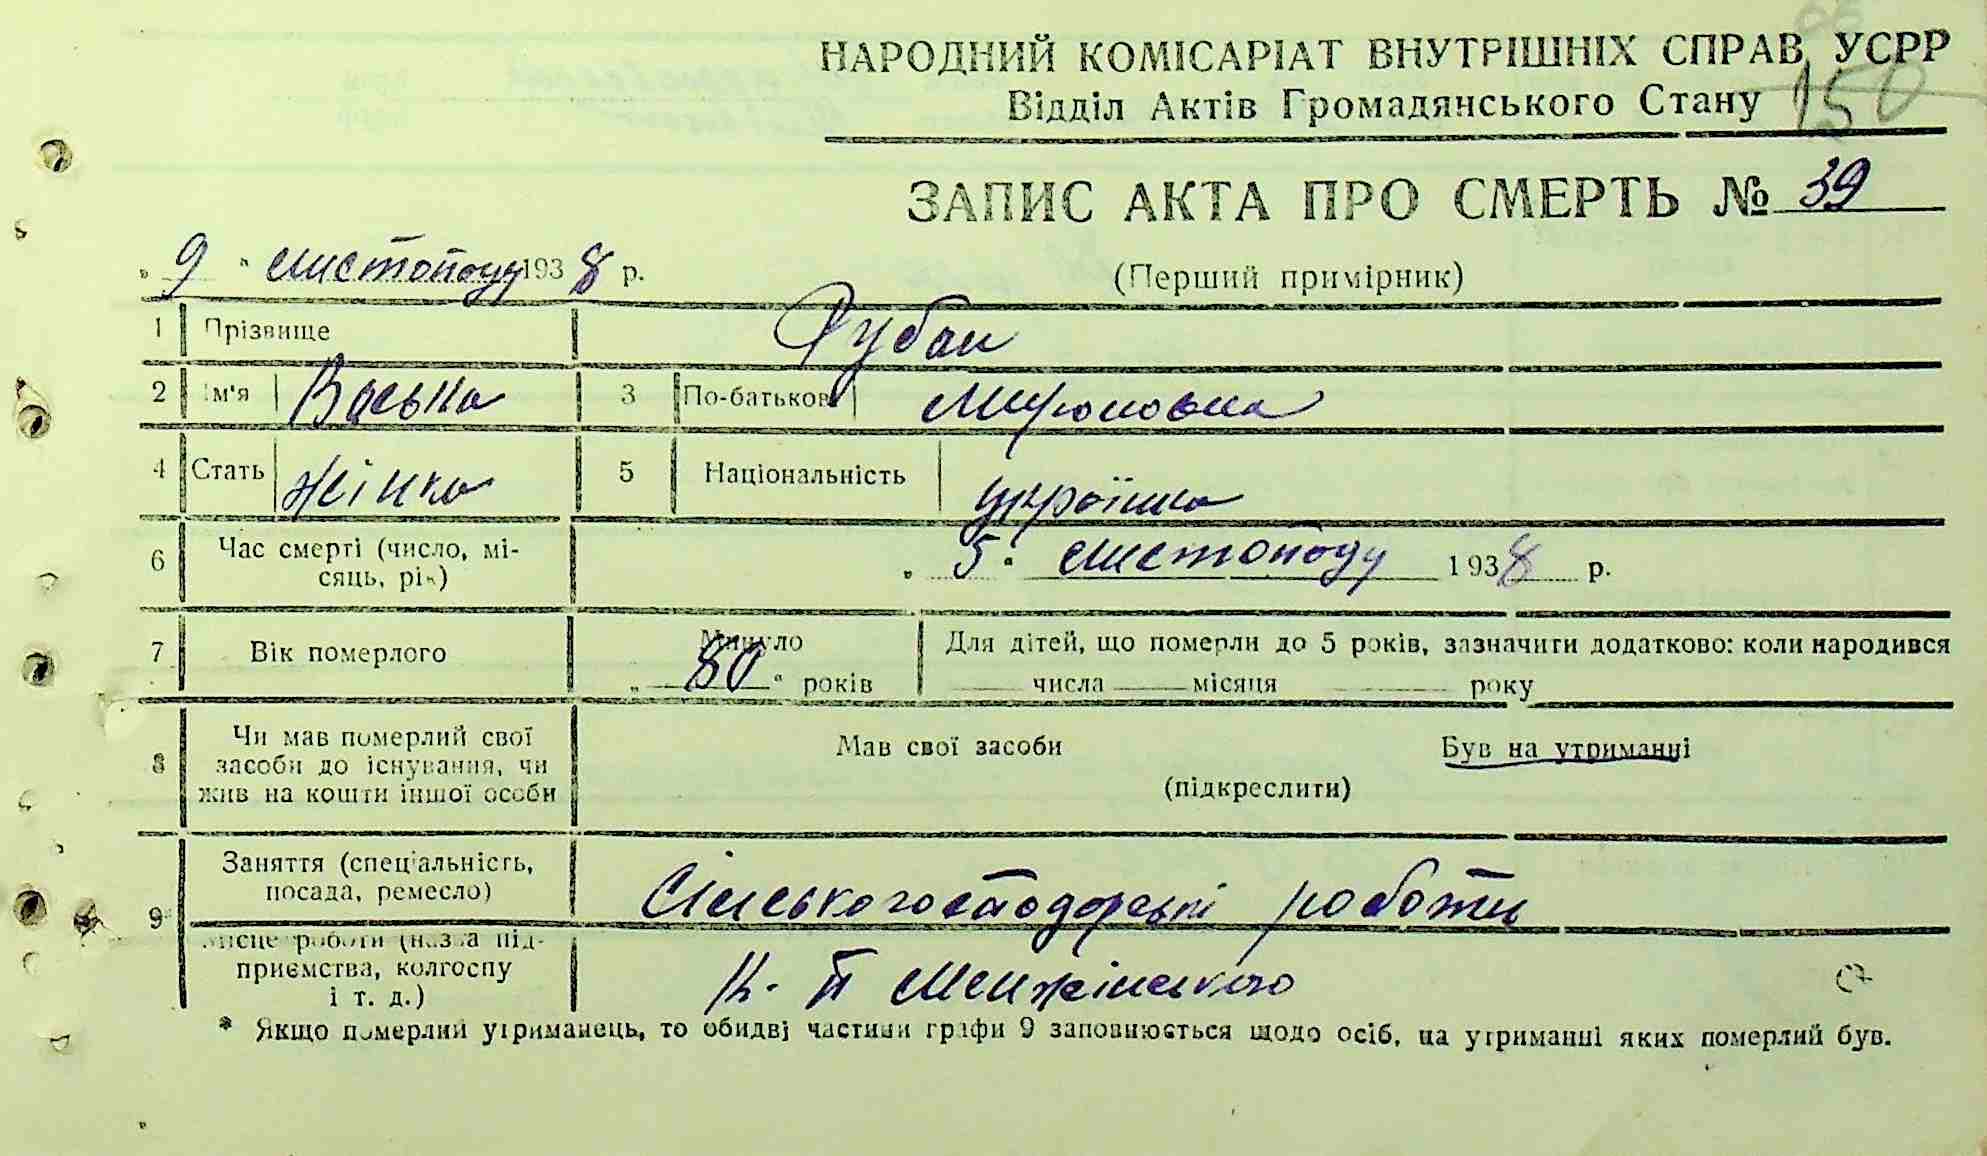 150
НАРОДНИЙ КОМІСАРІАТ ВНУТРІШНІХ СПРАВ УСРР
Відділ Актів Громадянського Стану
ЗАПИС АКТА ПРО СМЕРТЬ № 39
„ 9 " листопаду 1938 р.
(Перший примірник)
1 Прізвище Рубан
2 Ім'я Васька 3 По-батькові Мироновна
4 Стать жінка 5 Національність українка
6 Час смерті (число, мі-
сяць, рік) „ 5 " листопаду 1938 р.
7 Вік померлого Минуло
„ 80 " років
Для дітей, що померли до 5 років, зазначити додатково: коли народився
числа місяця року
8 Чи мав померлий свої
засоби до існування, чи
жив на кошти іншої особи
Мав свої засоби Був на утриманні
(підкреслити)
9* Заняття (спеціальність,
посада, ремесло) Сільськогосподарські роботи
Місце роботи (назва під-
приємства, колгоспу
і т. д.) Менжінського
* Якщо померлий утриманець, то обидві частини графи 9 заповнюється щодо осіб, на утриманні яких померлий був.